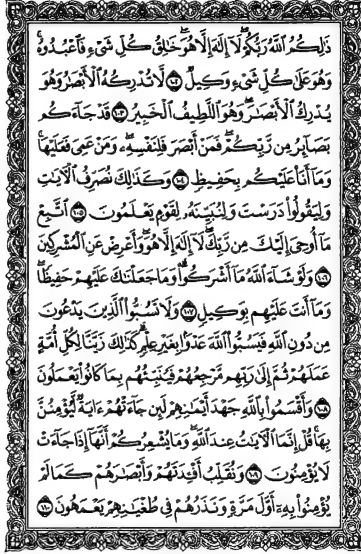 ذَٰلِكُمُ اللَّهُ رَبُّكُمْ لَا إِلَٰهَ إِلَّا هُوَ خَالِقُ كُلِّ شَيْءٍ فَاعْبُدُوهُ
وَهُوَ عَلَىٰ كُلِّ شَيْءٍ وَكِيلٌ ١٠٢ لَا تُدْرِكُهُ الْأَبْصَارُ وَهُوَ
يُدْرِكُ الْأَبْصَارَ وَهُوَ اللَّطِيفُ الْخَبِيرُ ١٠٣ قَدْ جَاءَكُم
بَصَائِرُ مِن رَّبِّكُمْ فَمَنْ أَبْصَرَ فَلِنَفْسِهِ وَمَنْ عَمِيَ فَعَلَيْهَا
وَمَا أَنَا عَلَيْكُم بِحَفِيظٍ ١٠٤ وَكَذَٰلِكَ نُصَرِّفُ الْآيَاتِ
وَلِيَقُولُوا دَرَسْتَ وَلِنُبَيِّنَهُ لِقَوْمٍ يَعْلَمُونَ ١٠٥ اتَّبِعْ
مَا أُوحِيَ إِلَيْكَ مِن رَّبِّكَ لَا إِلَٰهَ إِلَّا هُوَ وَأَعْرِضْ عَنِ الْمُشْرِكِينَ
١٠٦ وَلَوْ شَاءَ اللَّهُ مَا أَشْرَكُوا وَمَا جَعَلْنَاكَ عَلَيْهِمْ حَفِيظًا
وَمَا أَنتَ عَلَيْهِم بِوَكِيلٍ ١٠٧ وَلَا تَسُبُّوا الَّذِينَ يَدْعُونَ
مِن دُونِ اللَّهِ فَيَسُبُّوا اللَّهَ عَدْوًا بِغَيْرِ عِلْمٍ كَذَٰلِكَ زَيَّنَّا لِكُلِّ أُمَّةٍ
عَمَلَهُمْ ثُمَّ إِلَىٰ رَبِّهِم مَّرْجِعُهُمْ فَيُنَبِّئُهُم بِمَا كَانُوا يَعْمَلُونَ
١٠٨ وَأَقْسَمُوا بِاللَّهِ جَهْدَ أَيْمَانِهِمْ لَئِن جَاءَتْهُمْ آيَةٌ لَّيُؤْمِنُنَّ
بِهَا قُلْ إِنَّمَا الْآيَاتُ عِندَ اللَّهِ وَمَا يُشْعِرُكُمْ أَنَّهَا إِذَا جَاءَتْ
لَا يُؤْمِنُونَ ١٠٩ وَنُقَلِّبُ أَفْئِدَتَهُمْ وَأَبْصَارَهُمْ كَمَا لَمْ
يُؤْمِنُوا بِهِ أَوَّلَ مَرَّةٍ وَنَذَرُهُمْ فِي طُغْيَانِهِمْ يَعْمَهُونَ ١١٠